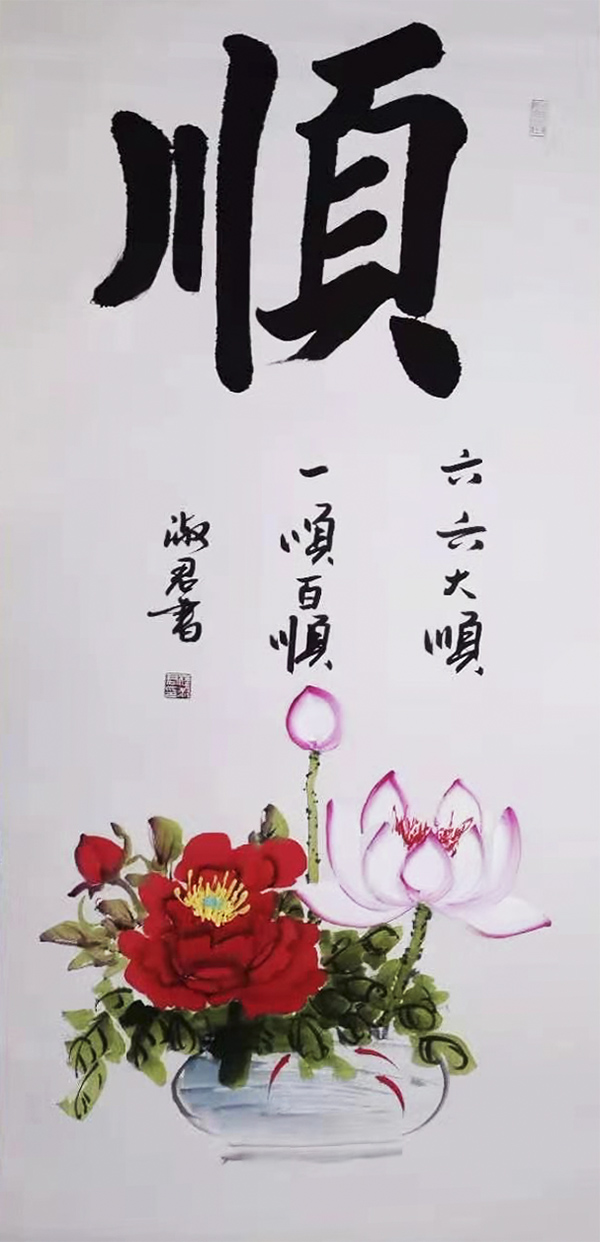 順
六六大順
一順百順
淑君書